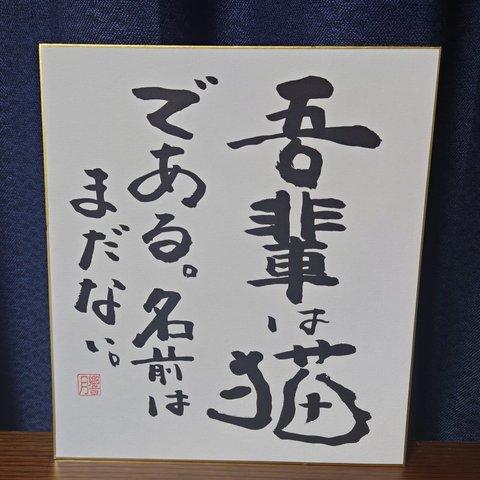 吾輩は猫
である。名前は
まだない。